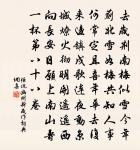 去歲荆南梅似雪今年
薊北雪如梅共知人事
何常定且喜年華去復
來邊鎮戍歌連夜動京
城燎火徹明開遙遙西
向長安日願上南山壽
一杯 第八十八卷
張說幽州新歲作詞典
網書